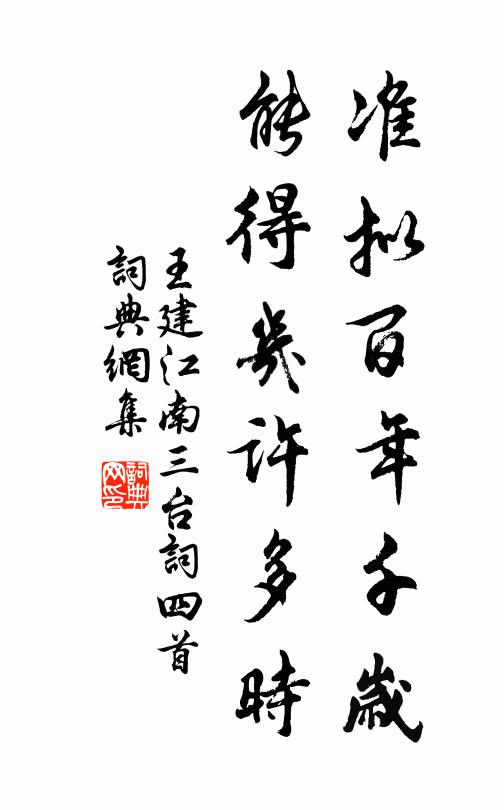 准拟百年千歲
能得幾許多時
王建江南三台詞四首
詞典網集
詞典網印